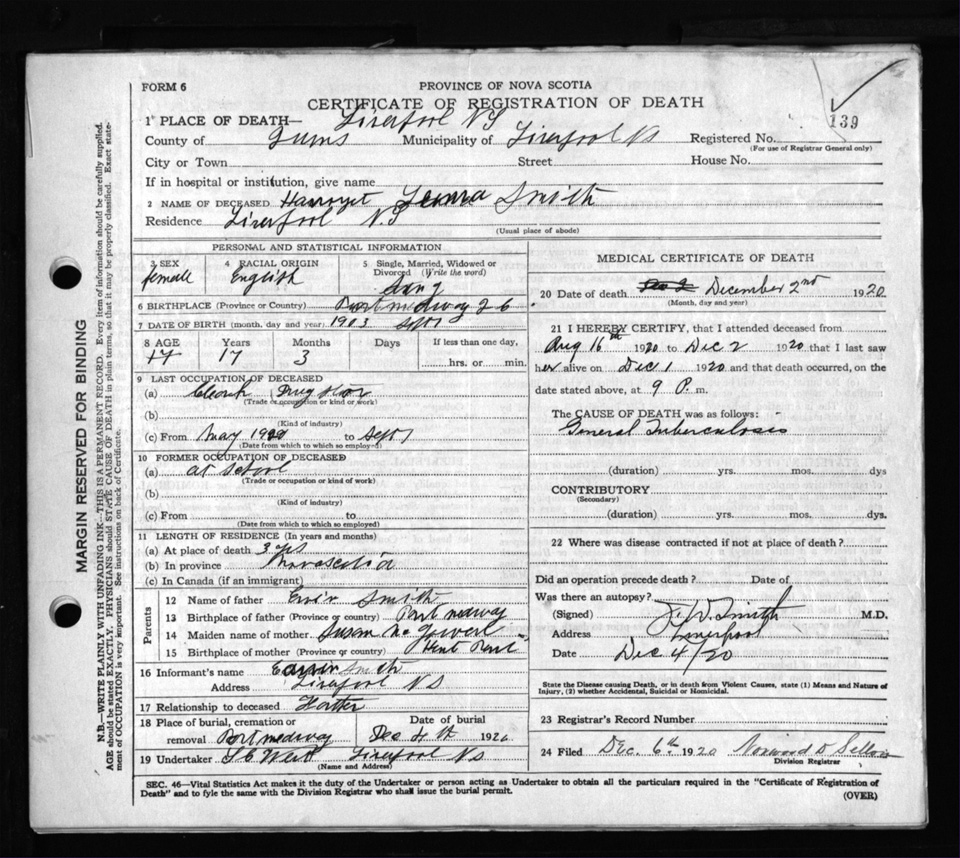 FORM 6
PROVINCE OF NOVA SCOTIA
CERTIFICATE OF REGISTRATION OF DEATH
139
1 PLACE OF DEATH— Liverpool NS
County of Municipality of Liverpool NS Registered No.
(For use of Registrar General only)
City or Town Street House No.
If in hospital or institution, give name
2 NAME OF DECEASED Smith
Residence Liverpool N.S
(Usual place of abode)
PERSONAL AND STATISTICAL INFORMATION
3 SEX 4 RACIAL ORIGIN 5 Single, Married, Widowed or Divorced (Write the word)
female English Sing
6 BIRTHPLACE (Province or Country) Port medway
7 DATE OF BIRTH (month, day and year) 1903 Sept
8 AGE Years Months Days If less than one day,
17 17 3 hrs. or min.
9 LAST OCCUPATION OF DECEASED
(a) Clerk Drug Stor
(Trade or occupation or kind of work)
(b)
(Kind of industry)
(c) From May 1920 to Sept
(Date from which to which so employed)
10 FORMER OCCUPATION OF DECEASED
(a) at School
(Trade or occupation or kind of work)
(b)
(Kind of industry)
(c) From to
(Date from which to which so employed)
11 LENGTH OF RESIDENCE (In years and months)
(a) At place of death 3 yrs
(b) In province Novascotia
(c) In Canada (if an immigrant)
Parents
12 Name of father Smith
13 Birthplace of father (Province or Country) Port medway
14 Maiden name of mother Susan
15 Birthplace of mother (Province or country)
16 Informant's name Smith
Address Liverpool NS
17 Relationship to deceased Father
18 Place of burial, cremation or removal Port medway Date of burial Dec 4th 1920
19 Undertaker Liverpool NS
(Name and Address)
MEDICAL CERTIFICATE OF DEATH
20 Date of death Dec 2 December 2nd 1920
(Month, day and year)
21 I HEREBY CERTIFY, that I attended deceased from
Aug 16th 1920 to Dec 2 1920 that I last saw
her alive on Dec 1 1920 and that death occurred, on the
date stated above, at 9 P. m.
The CAUSE OF DEATH was as follows:
General Tuberculosis
(duration) yrs. mos. dys
CONTRIBUTORY
(Secondary)
(duration) yrs. mos. dys.
22 Where was disease contracted if not at place of death?
Did an operation precede death? Date of
Was there an autopsy?
(Signed) J. W. Smith M.D.
Address Liverpool
Date Dec 4/20
State the Disease causing Death, or in death from Violent Causes, state (1) Means and Nature of
Injury, (2) whether Accidental, Suicidal or Homicidal.
23 Registrar's Record Number
24 Filed Dec. 6th. 1920
Division Registrar
SEC. 46—Vital Statistics Act makes it the duty of the Undertaker or person acting as Undertaker to obtain all the particulars required in the "Certificate of Registration of
Death" and to fyle the same with the Division Registrar who shall issue the burial permit.
(OVER)
MARGIN RESERVED FOR BINDING
N.B.—WRITE PLAINLY WITH UNFADING INK—THIS IS A PERMANENT RECORD. Every item of information should be carefully supplied.
AGE should be stated EXACTLY. PHYSICIANS should STATE CAUSE OF DEATH in plain terms, so that it may be properly classified. Exact state-
ment of OCCUPATION is very important. See instructions on back of Certificate.